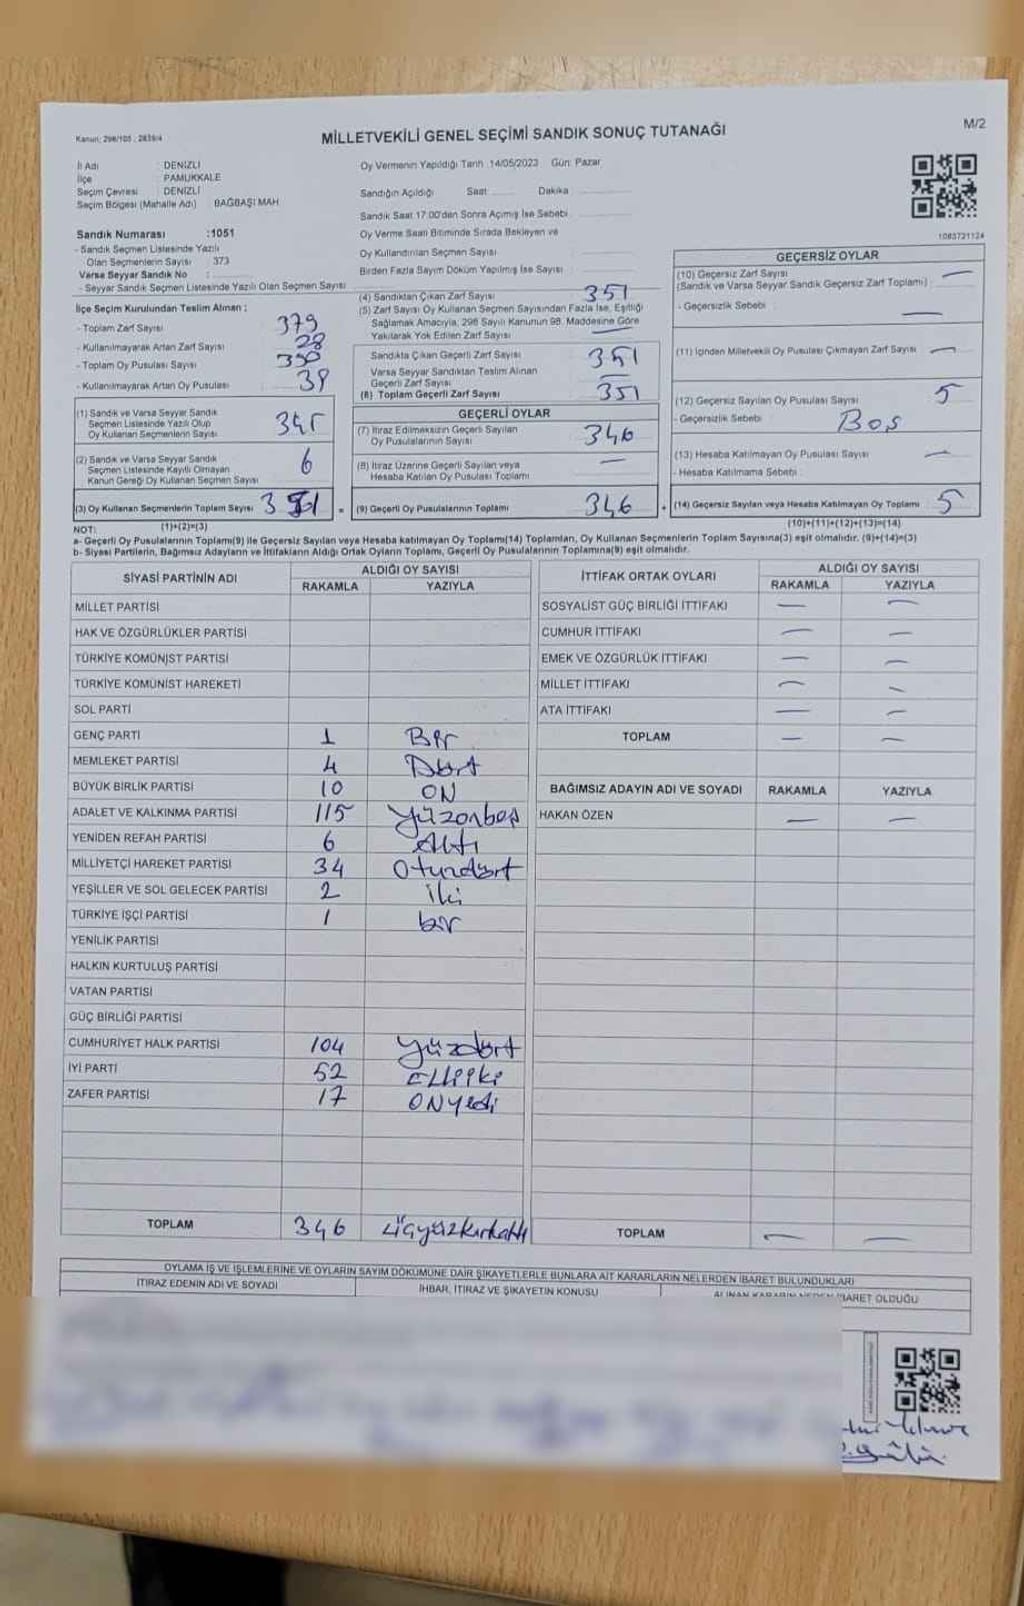 Kanun: 298/105 ; 2839/4
MİLLETVEKİLİ GENEL SEÇİMİ SANDIK SONUÇ TUTANAĞI
M/2
İl Adı : DENİZLİ
İlçe : PAMUKKALE
Seçim Çevresi : DENİZLİ
Seçim Bölgesi (Mahalle Adı) BAĞBAŞI MAH
Sandık Numarası :1051
- Sandık Seçmen Listesinde Yazılı
Olan Seçmenlerin Sayısı 373
Varsa Seyyar Sandık No :
- Seyyar Sandık Seçmen Listesinde Yazılı Olan Seçmen Sayısı
Oy Vermenin Yapıldığı Tarih :14/05/2023 Gün: Pazar
Sandığın Açıldığı Saat Dakika
Sandık Saat 17.00'den Sonra Açılmış İse Sebebi
Oy Verme Saati Bitiminde Sırada Bekleyen ve
Oy Kullandırılan Seçmen Sayısı
Birden Fazla Sayım Döküm Yapılmış İse Sayısı
1083721124
İlçe Seçim Kurulundan Teslim Alınan ;
- Toplam Zarf Sayısı 379
- Kullanılmayarak Artan Zarf Sayısı 28
- Toplam Oy Pusulası Sayısı
- Kullanılmayarak Artan Oy Pusulası
(1) Sandık ve Varsa Seyyar Sandık
Seçmen Listesinde Yazılı Olup
Oy Kullanan Seçmenlerin Sayısı 345
(2) Sandık ve Varsa Seyyar Sandık
Seçmen Listesinde Kayıtlı Olmayan
Kanun Gereği Oy Kullanan Seçmen Sayısı 6
(3) Oy Kullanan Seçmenlerin Toplam Sayısı 351 =
(4) Sandıktan Çıkan Zarf Sayısı 351
(5) Zarf Sayısı Oy Kullanan Seçmen Sayısından Fazla İse, Eşitliği
Sağlamak Amacıyla, 298 Sayılı Kanunun 98. Maddesine Göre
Yakılarak Yok Edilen Zarf Sayısı —
Sandıkta Çıkan Geçerli Zarf Sayısı 351
Varsa Seyyar Sandıktan Teslim Alınan
Geçerli Zarf Sayısı —
(6) Toplam Geçerli Zarf Sayısı 351
GEÇERLİ OYLAR
(7) İtiraz Edilmeksizin Geçerli Sayılan
Oy Pusulalarının Sayısı 346
(8) İtiraz Üzerine Geçerli Sayılan veya
Hesaba Katılan Oy Pusulası Toplamı —
(9) Geçerli Oy Pusulalarının Toplamı 346 +
GEÇERSİZ OYLAR
(10) Geçersiz Zarf Sayısı —
(Sandık ve Varsa Seyyar Sandık Geçersiz Zarf Toplamı)
- Geçersizlik Sebebi : —
(11) İçinden Milletvekili Oy Pusulası Çıkmayan Zarf Sayısı —
(12) Geçersiz Sayılan Oy Pusulası Sayısı 5
- Geçersizlik Sebebi : Boş
(13) Hesaba Katılmayan Oy Pusulası Sayısı —
- Hesaba Katılmama Sebebi :
(14) Geçersiz Sayılan veya Hesaba Katılmayan Oy Toplamı 5
NOT: (1)+(2)=(3) (10)+(11)+(12)+(13)=(14)
a- Geçerli Oy Pusulalarının Toplamı(9) ile Geçersiz Sayılan veya Hesaba katılmayan Oy Toplamı(14) Toplamları, Oy Kullanan Seçmenlerin Toplam Sayısına(3) eşit olmalıdır. (9)+(14)=(3)
b- Siyasi Partilerin, Bağımsız Adayların ve İttifakların Aldığı Ortak Oyların Toplamı, Geçerli Oy Pusulalarının Toplamına(9) eşit olmalıdır.
SİYASİ PARTİNİN ADI ALDIĞI OY SAYISI
RAKAMLA YAZIYLA
MİLLET PARTİSİ
HAK VE ÖZGÜRLÜKLER PARTİSİ
TÜRKİYE KOMÜNİST PARTİSİ
TÜRKİYE KOMÜNİST HAREKETİ
SOL PARTİ
GENÇ PARTİ 1 Bir
MEMLEKET PARTİSİ 4 Dört
BÜYÜK BİRLİK PARTİSİ 10 ON
ADALET VE KALKINMA PARTİSİ 115 Yüzonbeş
YENİDEN REFAH PARTİSİ 6 Altı
MİLLİYETÇİ HAREKET PARTİSİ 34 Otuzdört
YEŞİLLER VE SOL GELECEK PARTİSİ 2 İki
TÜRKİYE İŞÇİ PARTİSİ 1 bir
YENİLİK PARTİSİ
HALKIN KURTULUŞ PARTİSİ
VATAN PARTİSİ
GÜÇ BİRLİĞİ PARTİSİ
CUMHURİYET HALK PARTİSİ 104 Yüzdört
İYİ PARTİ 52 Elliiki
ZAFER PARTİSİ 17 ONyedi
TOPLAM 346 Üçyüzkırkaltı
İTTİFAK ORTAK OYLARI ALDIĞI OY SAYISI
RAKAMLA YAZIYLA
SOSYALİST GÜÇ BİRLİĞİ İTTİFAKI — —
CUMHUR İTTİFAKI — —
EMEK VE ÖZGÜRLÜK İTTİFAKI — —
MİLLET İTTİFAKI — —
ATA İTTİFAKI — —
TOPLAM — —
BAĞIMSIZ ADAYIN ADI VE SOYADI RAKAMLA YAZIYLA
HAKAN ÖZEN — —
TOPLAM — —
OYLAMA İŞ VE İŞLEMLERİNE VE OYLARIN SAYIM DÖKÜMÜNE DAİR ŞİKAYETLERLE BUNLARA AİT KARARLARIN NELERDEN İBARET BULUNDUKLARI
İTİRAZ EDENİN ADI VE SOYADI İHBAR, İTİRAZ VE ŞİKAYETİN KONUSU ALINAN KARARIN NEDEN İBARET OLDUĞU